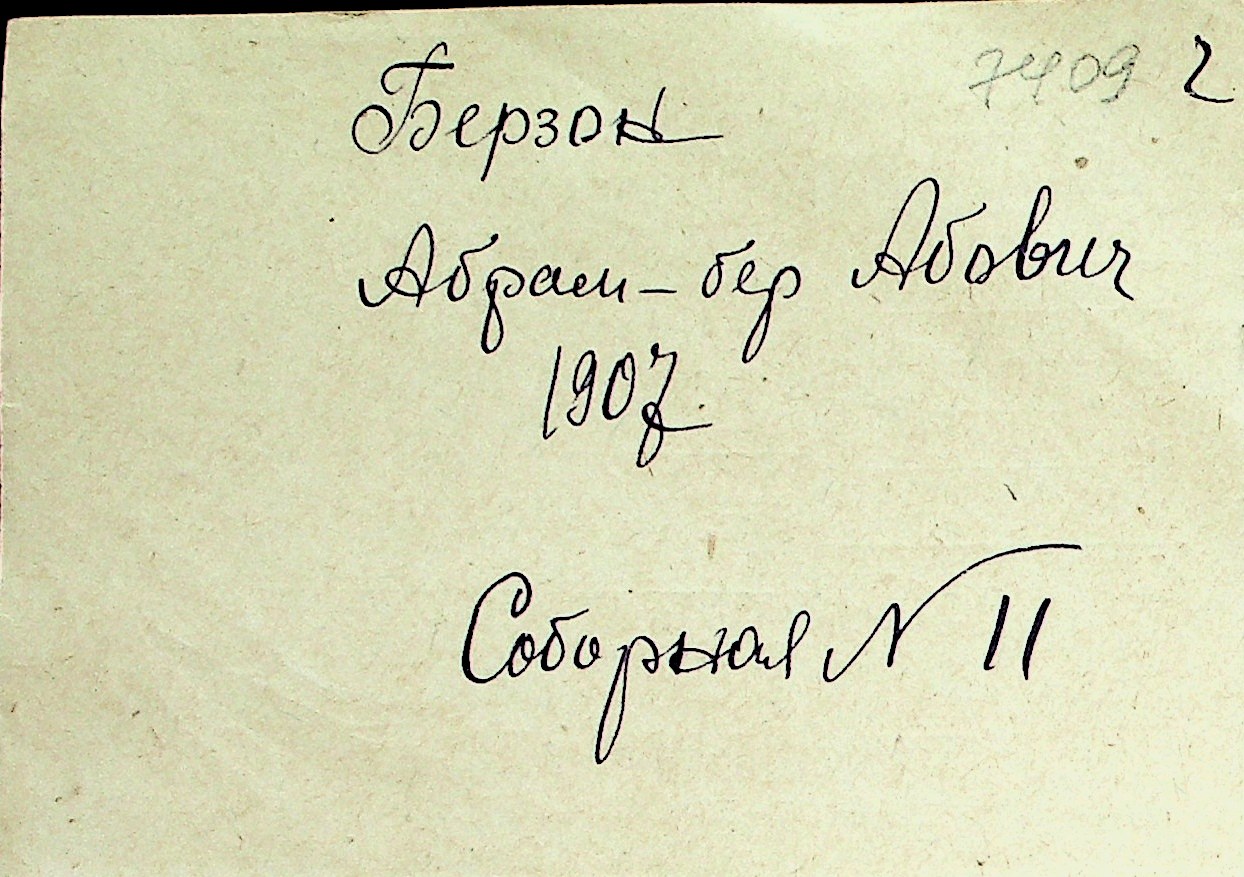 7409 2
Берзон
Абрам-бер Абович
1907
Соборная N 11